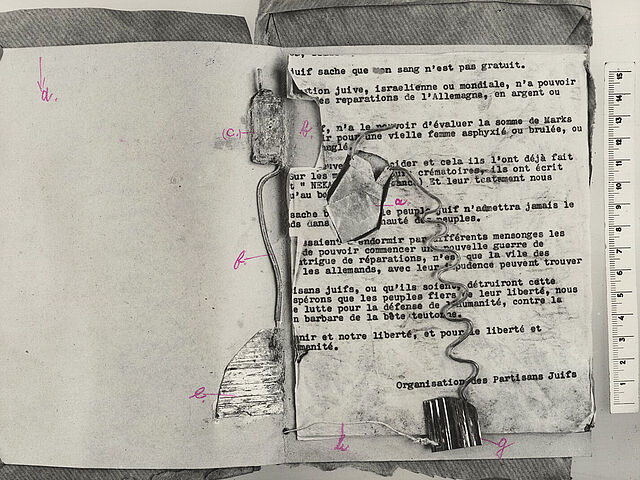 d.
(c.)
b.
a.
f.
e.
h
g
juif sache que son sang n'est pas gratuit.
tion juive, israelienne ou mondiale, n'a pouvoir
es reparations de l'Allemagne, en argent ou
f, n'a le pouvoir d'évaluer la somme de Marks
ir pour une vielle femme asphyxié ou brulée, ou
nglé.
cider et cela ils l'ont déjà fait
sur les m crématoires, ils ont écrit
t " NEKA Et leur testament nous
u'au b
sache peuple juif n'admettra jamais le
ds dans nauté des peuples.
ssaient endormir par différents mensonges les
de pouvoir commencer un nouvelle guerre de
trigue de réparations, n'es que la vile des
les allemands, avec leur pudence peuvent trouver
isans juifs, ou qu'ils soient, détruiront cette
spérons que les peuples fiers de leur liberté, nous
e lutte pour la défense de l'humanité, contre la
n barbare de la bête teutone.
nir et notre liberté, et pour le liberté et
manité.
Organisation des Partisans Juifs
1 2 3 4 5 6 7 8 9 10 11 12 13 14 15